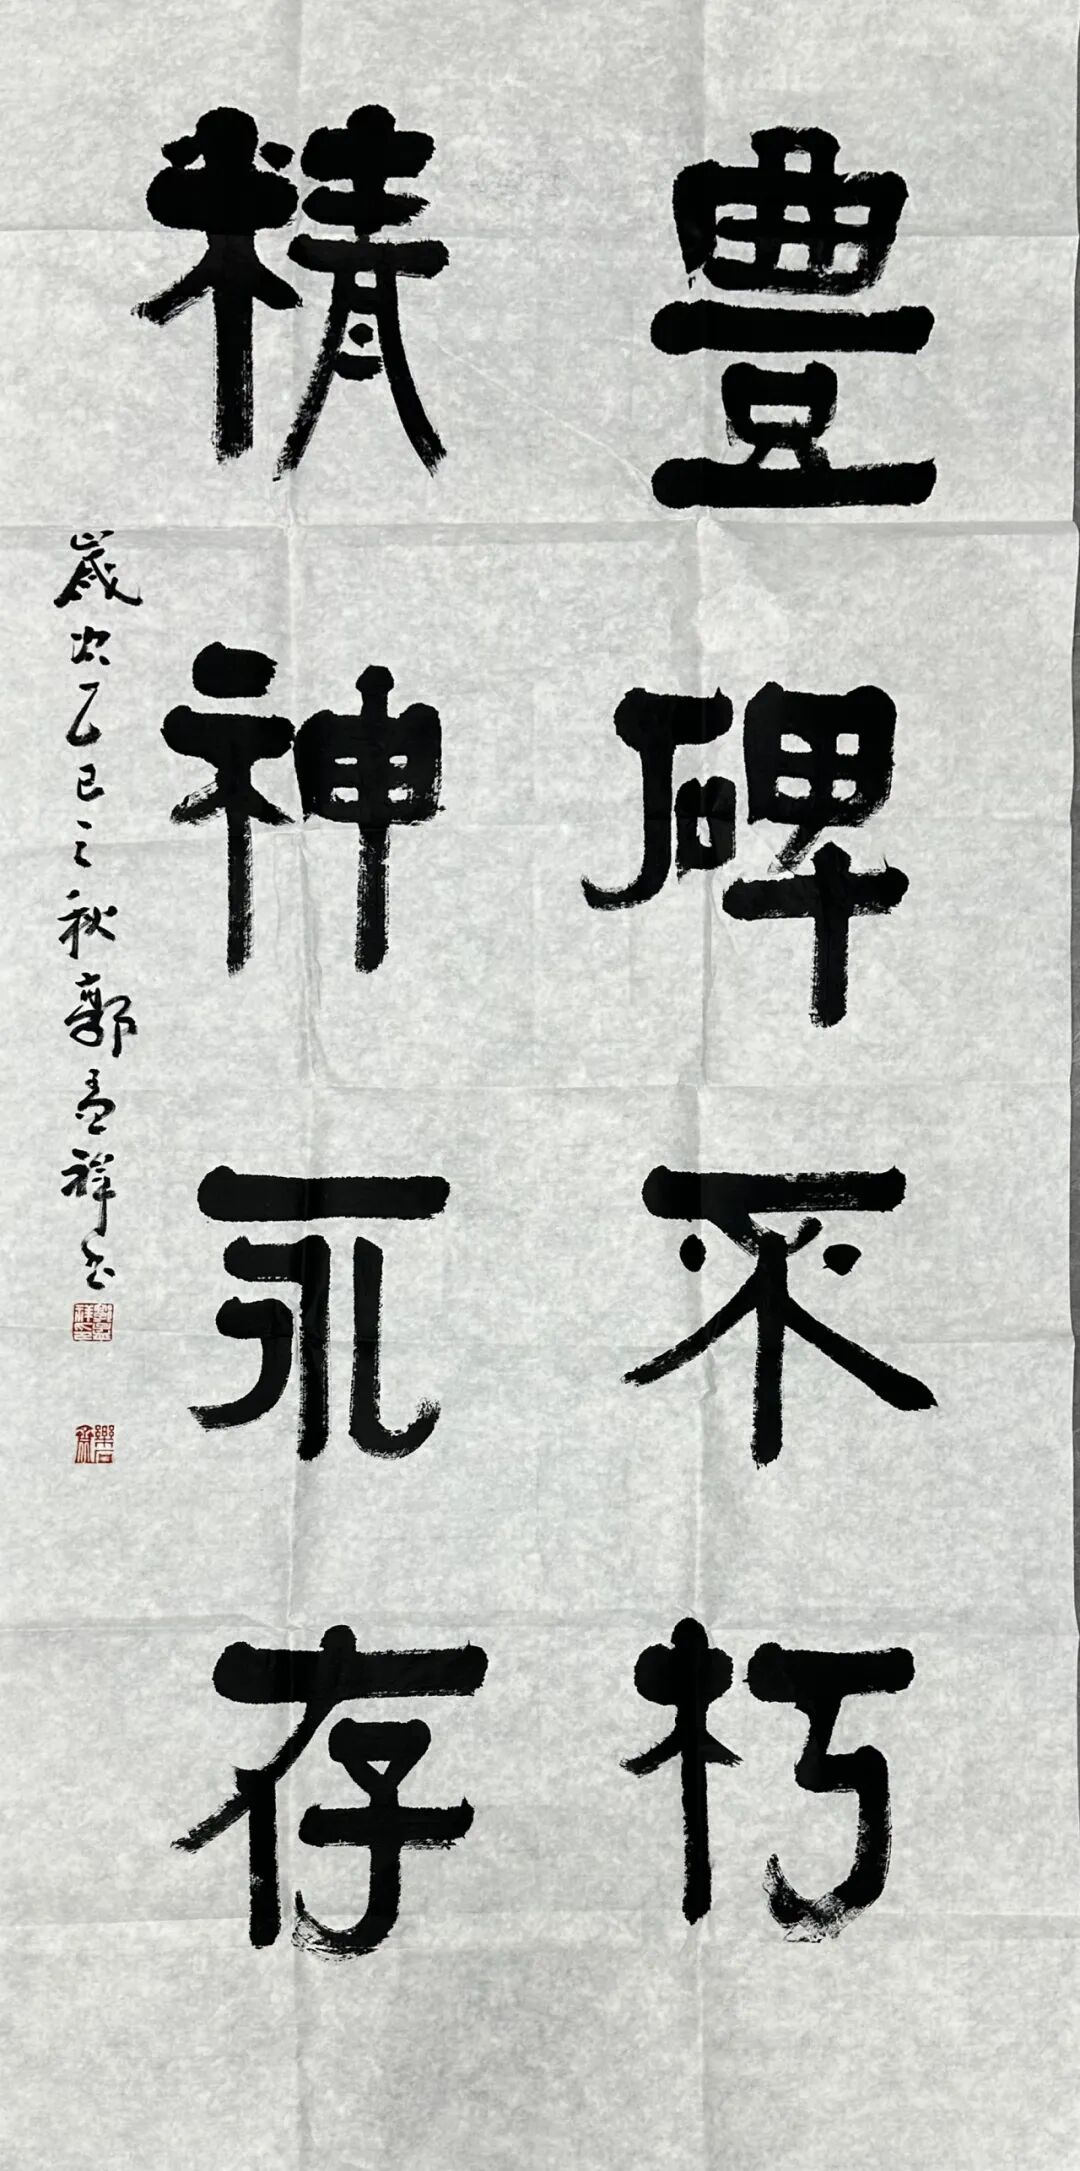 豊碑不朽
精神永存
歲次乙巳之秋郭孟祥書